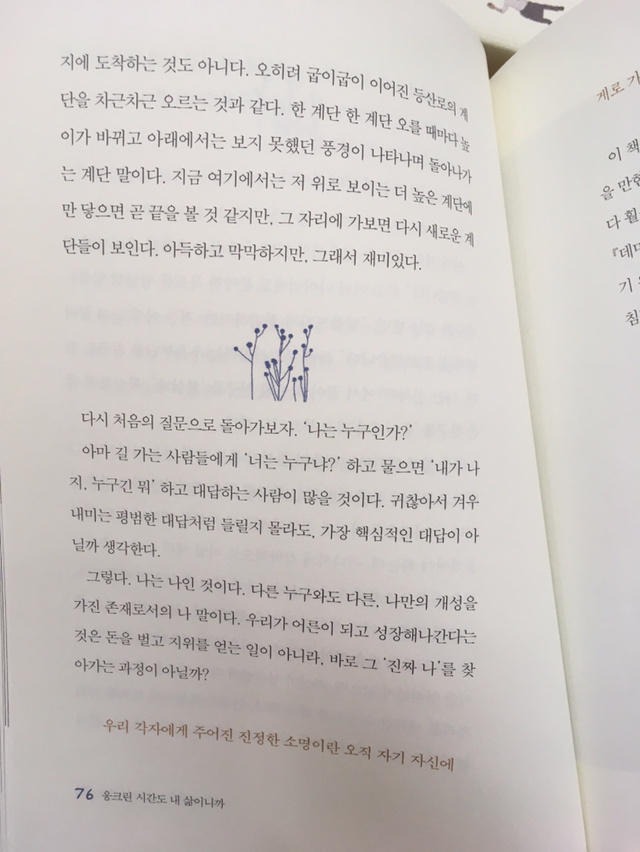 지에 도착하는 것도 아니다. 오히려 굽이굽이 이어진 등산로의 계
단을 차근차근 오르는 것과 같다. 한 계단 한 계단 오를 때마다 높
이가 바뀌고 아래에서는 보지 못했던 풍경이 나타나며 돌아나가
는 계단 말이다. 지금 여기에서는 저 위로 보이는 더 높은 계단에
만 닿으면 곧 끝을 볼 것 같지만, 그 자리에 가보면 다시 새로운 계
단들이 보인다. 아득하고 막막하지만, 그래서 재미있다.
다시 처음의 질문으로 돌아가보자. ‘나는 누구인가?’
아마 길 가는 사람들에게 ‘너는 누구냐?’ 하고 물으면 ‘내가 나
지, 누구긴 뭐’ 하고 대답하는 사람이 많을 것이다. 귀찮아서 겨우
내미는 평범한 대답처럼 들릴지 몰라도, 가장 핵심적인 대답이 아
닐까 생각한다.
그렇다. 나는 나인 것이다. 다른 누구와도 다른, 나만의 개성을
가진 존재로서의 나 말이다. 우리가 어른이 되고 성장해나간다는
것은 돈을 벌고 지위를 얻는 일이 아니라, 바로 그 ‘진짜 나’를 찾
아가는 과정이 아닐까?
우리 각자에게 주어진 진정한 소명이란 오직 자기 자신에
76 웅크린 시간도 내 삶이니까
게로 가
이 책
을 만
다 훨
『데미
기
침